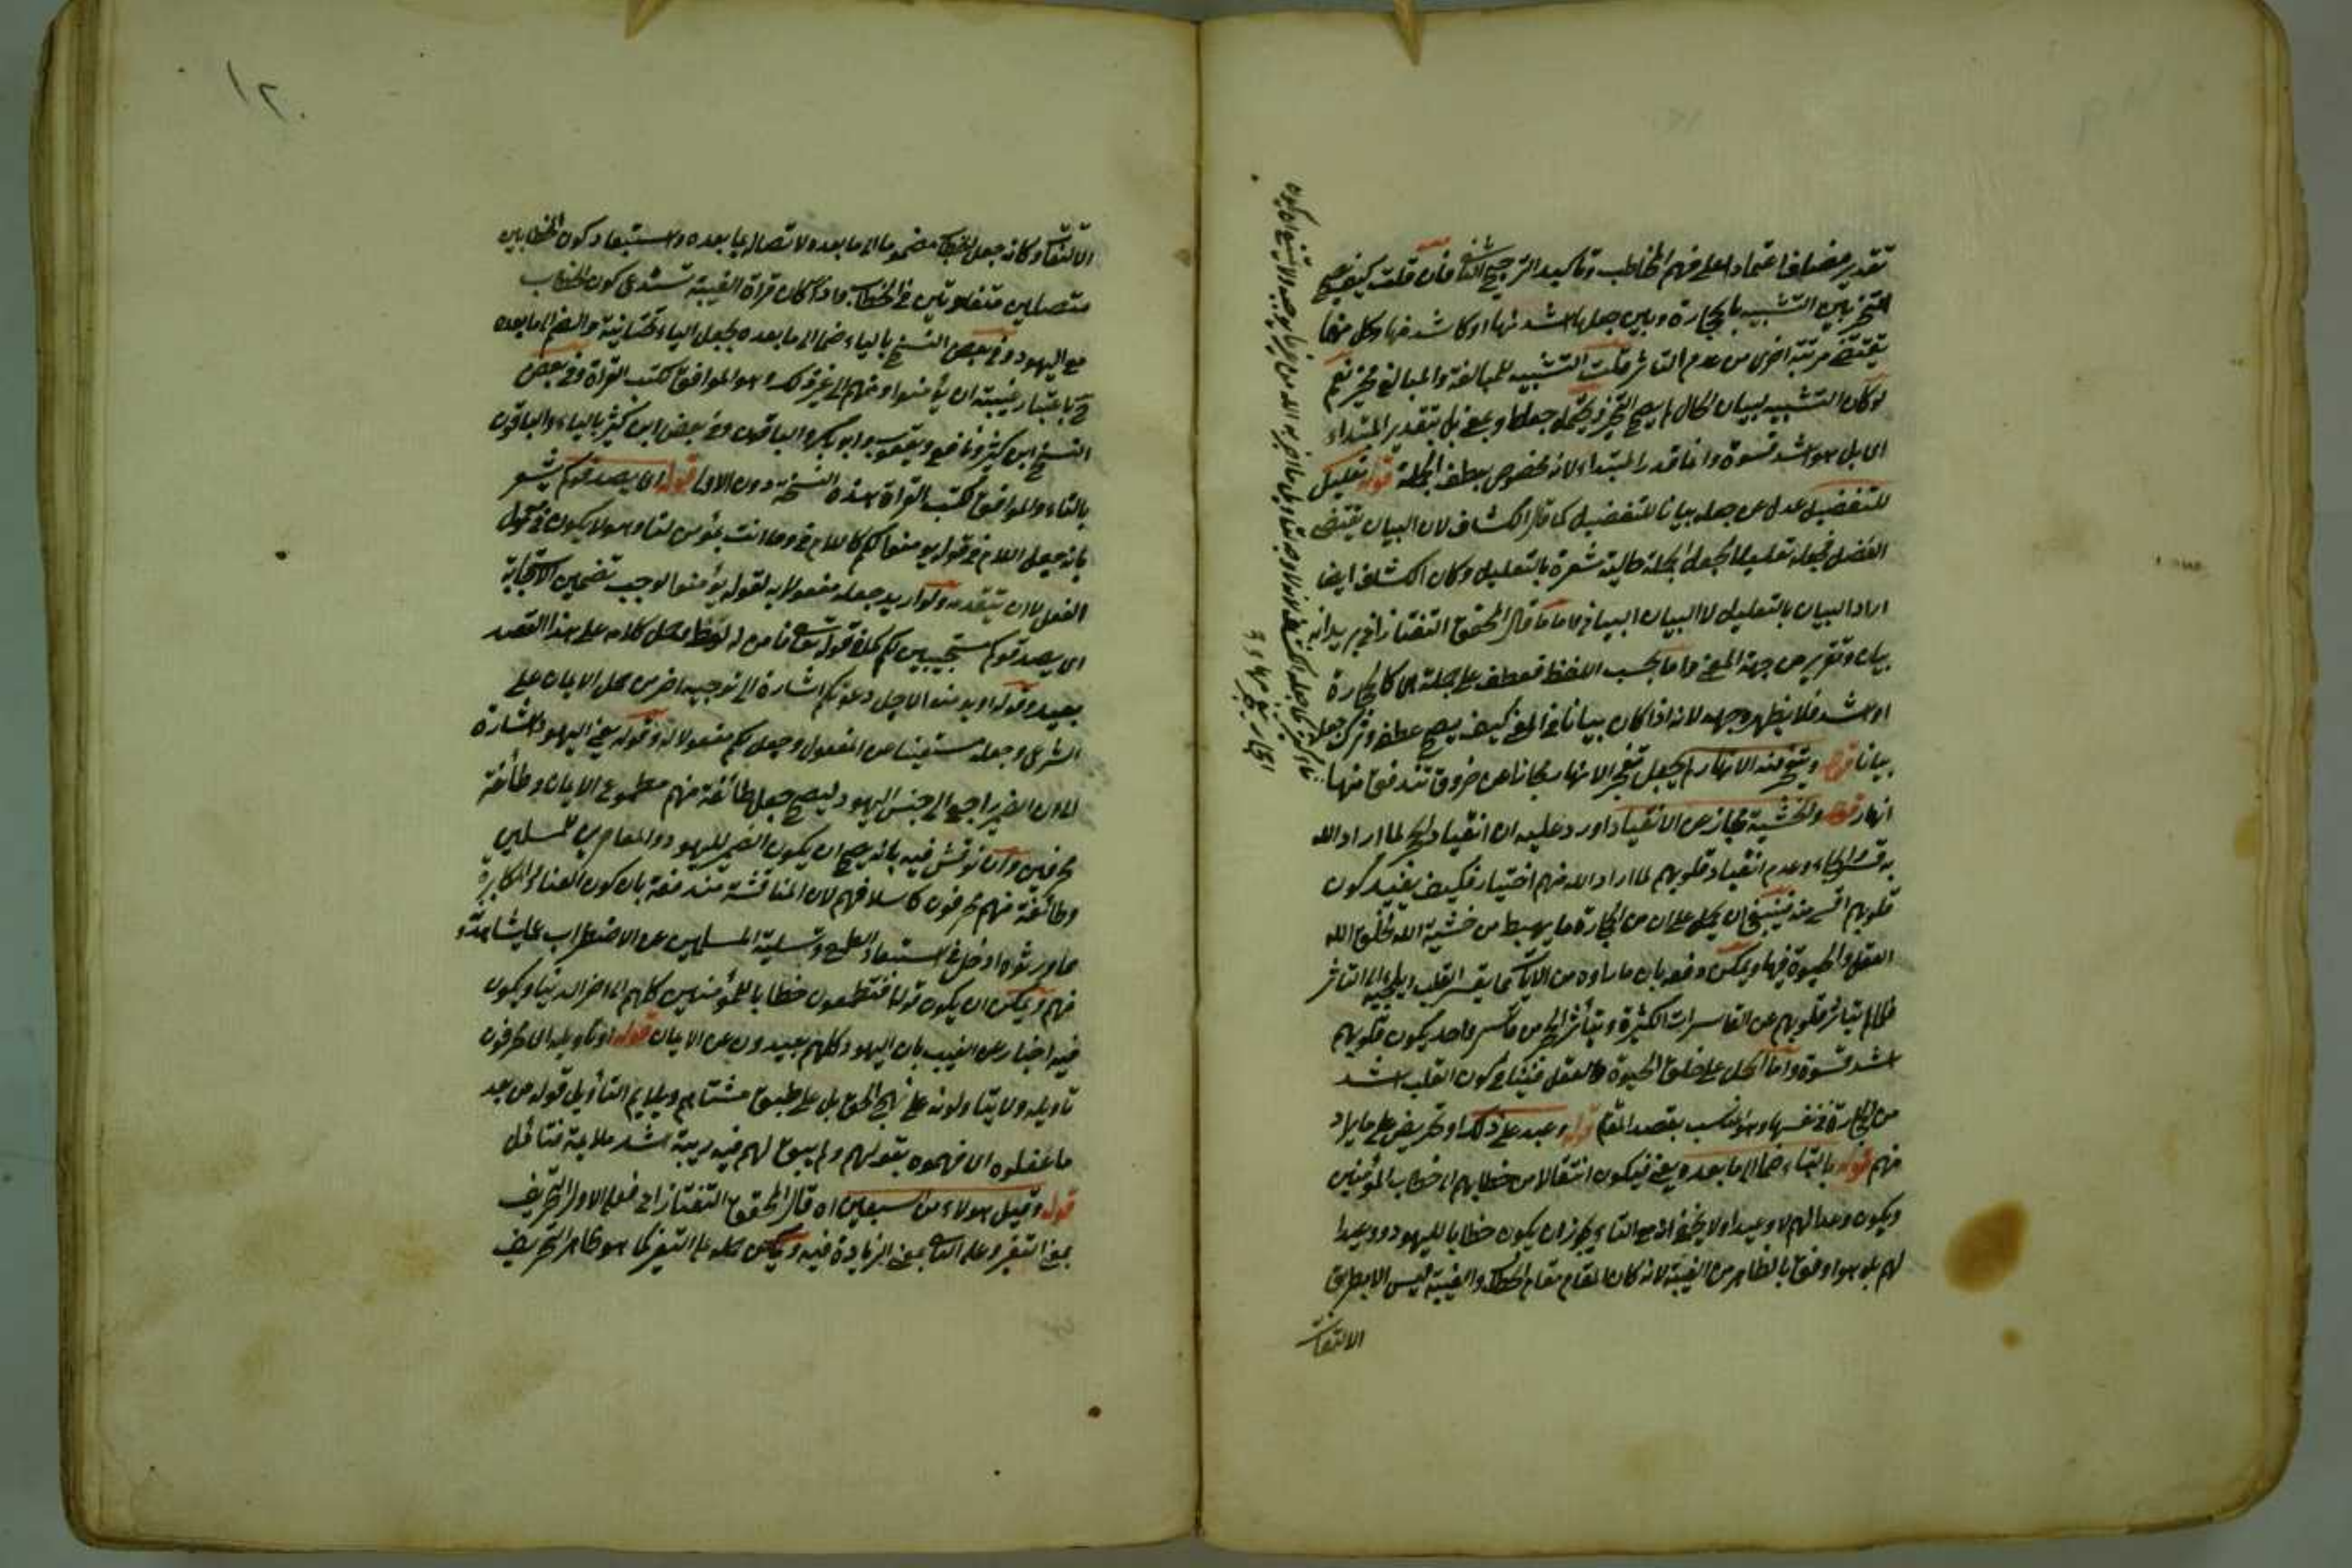 تقدير مضاف اعتمادا على فهم المخاطب وتاكيد الترجيح الثاني فان قلت كيف يصح
التخيير بين التشبيه بالحجارة وبين جعلها اشد منها او كاشد منها وكل منهما
يقتضي مرتبة اخرى من عدم التاثر قلت التشبيه للمبالغة والمبالغ مخير نعم
لو كان التشبيه لبيان الحال لم يصح التخيير ويحتمل جعل او بمعنى بل بتقدير المبتداء
اى بل هو اشد قسوة وانما قدر المبتداء لانه مخصوص بعطف الجملة قوله تعليل
للتفضيل عدل عن جعله بيانا للتفضيل كما قال الكشاف لان البيان يقتضى
الفصل فجعله تعليلا بجعل الجملة حالية مشعرة بالتعليل وكان الكشاف ايضا
اراد البيان بالتعليل لا البيان البياني واما ما قال المحقق التفتازاني يريد انه
بيان وتقرير من جهة المعنى واما بحسب اللفظ فعطف على جملة هى كالحجارة
او اشد فلا يظهر وجهه لانه اذا كان بيانا في المعنى كيف يصح عطفه وترك جعله
بيانا قوله وتتفجر منه الانهار لم يجعل تفجر الانهار مجازا عن خروق تندفق منها
انهار قوله والخشية مجاز عن الانقياد اورد عليه ان انقياد الحجر لما اراد الله
به قسرا وعدم انقياد قلوبهم لما اراد الله منهم اختيار فكيف يفيد كون
قلوبهم اقسى منه فينبغي ان يحمل على ان من الحجارة ما يهبط من خشية الله بخلق الله
العقل والحيوة فيها ويمكن دفعه بان ما راوه من الآيات كما يقسر القلب ويلجئه الى التاثر
فلما لم يتاثر قلوبهم عن القاسرات الكثيرة ويتأثر الحجر من قاسر واحد يكون قلوبهم
اشد قسوة واما الحمل على خلق الحيوة والعقل فينافي كون القلب اشد
من الحجارة في نفسها وهو انسب بقصد المقام قوله وعيد على ذلك او تحريض على ما يراد
منهم قوله بالتاء ضما الى ما بعده يعني فيكون انتقالا من خطابهم الى خطاب المؤمنين
ويكون وعدا لهم لا وعيدا ولا يخفى انه مع التاء يجوز ان يكون خطابا لليهود ووعيدا
لهم بل هو اوفق بالظاهر من الغيبة لانه كان المقام مقام الخطاب والغيبة ليس الا بطريق
الالتفات
الالتفات وكانه جعل الخطاب مضموما الى ما بعده لاتصاله بما بعده واستبعاد كون الخطابين
متصلين متفاوتين في الخطاب فاذا كان قراة الغيبة تستدعى كون الخطاب
مع اليهود وفي بعض النسخ بالياء ضما الى ما بعده بجعل الياء تحتانية والضم الى ما بعده
باعتبار غيبة ان يأمنوا ومنهم الى غير ذلك وهو الموافق لكتب القراة وفي بعض
النسخ ابن كثير ونافع ويعقوب وابو بكر والباقون وفي بعض ابن كثير بالياء والباقون
بالتاء والموافق لكتب القراة هذه النسخة دون الاولى قوله اى يصدقوكم يشعر
بانه جعل اللام في قوله يومنوا لكم كاللام في وما انت بمؤمن لنا وهو لا يكون في مفعول
الفعل الا ان يتقدمه ولو اريد جعله مفعولا به لقوله يؤمنوا لوجب تضمين الاستجابة
اى يصدقوكم مستجيبين لكم كما في قوله تعالى فامن له لوط وحمل كلامه على هذا القصد
بعيد وقوله او يومنوا لاجل دعوتكم اشارة الى توجيه اخر من حمل الايمان على
الشرعى وجعله مستغنيا عن المفعول وجعل لكم مفعولا له وقوله يعني اليهود اشارة
الى ان الضمير راجع الى جنس اليهود ليصح جعل طائفة منهم مطموع الايمان وطائفة
محرفين وان نوقش فيه بانه يصح ان يكون الضمير لليهود والمعاصرين للمسلمين
وطائفة منهم محرفون كاسلافهم لان المناقشة مندفعة بان كون العناد والمكابرة
مما ورثوه ادخل في استبعاد الطمع وتسلية المسلمين عن الاضطراب بما يشاهدون
منهم ويمكن ان يكون قوله افتطمعون خطابا للمؤمنين كلهم الى اخر الدنيا ويكون
فيه اخبار عن الغيب بان اليهود كلهم بعيدون عن الايمان قوله او تاويله اى يحرفون
تاويله ولا يتاولونه على نهج الحق بل على طبق مشتهاهم ويلايم التأويل قوله من بعد
ما عقلوه اى فهموه بعقولهم ولم يبق لهم فيه ريبة اشد ملايمة فتامل
قوله وقيل هولاء من السبعين اه قال المحقق التفتازاني فعلى الاول التحريف
بمعنى التغير وعلى الثاني بمعنى الزيادة فيه ويمكن حمله على التغير كما هو ظاهر التحريف